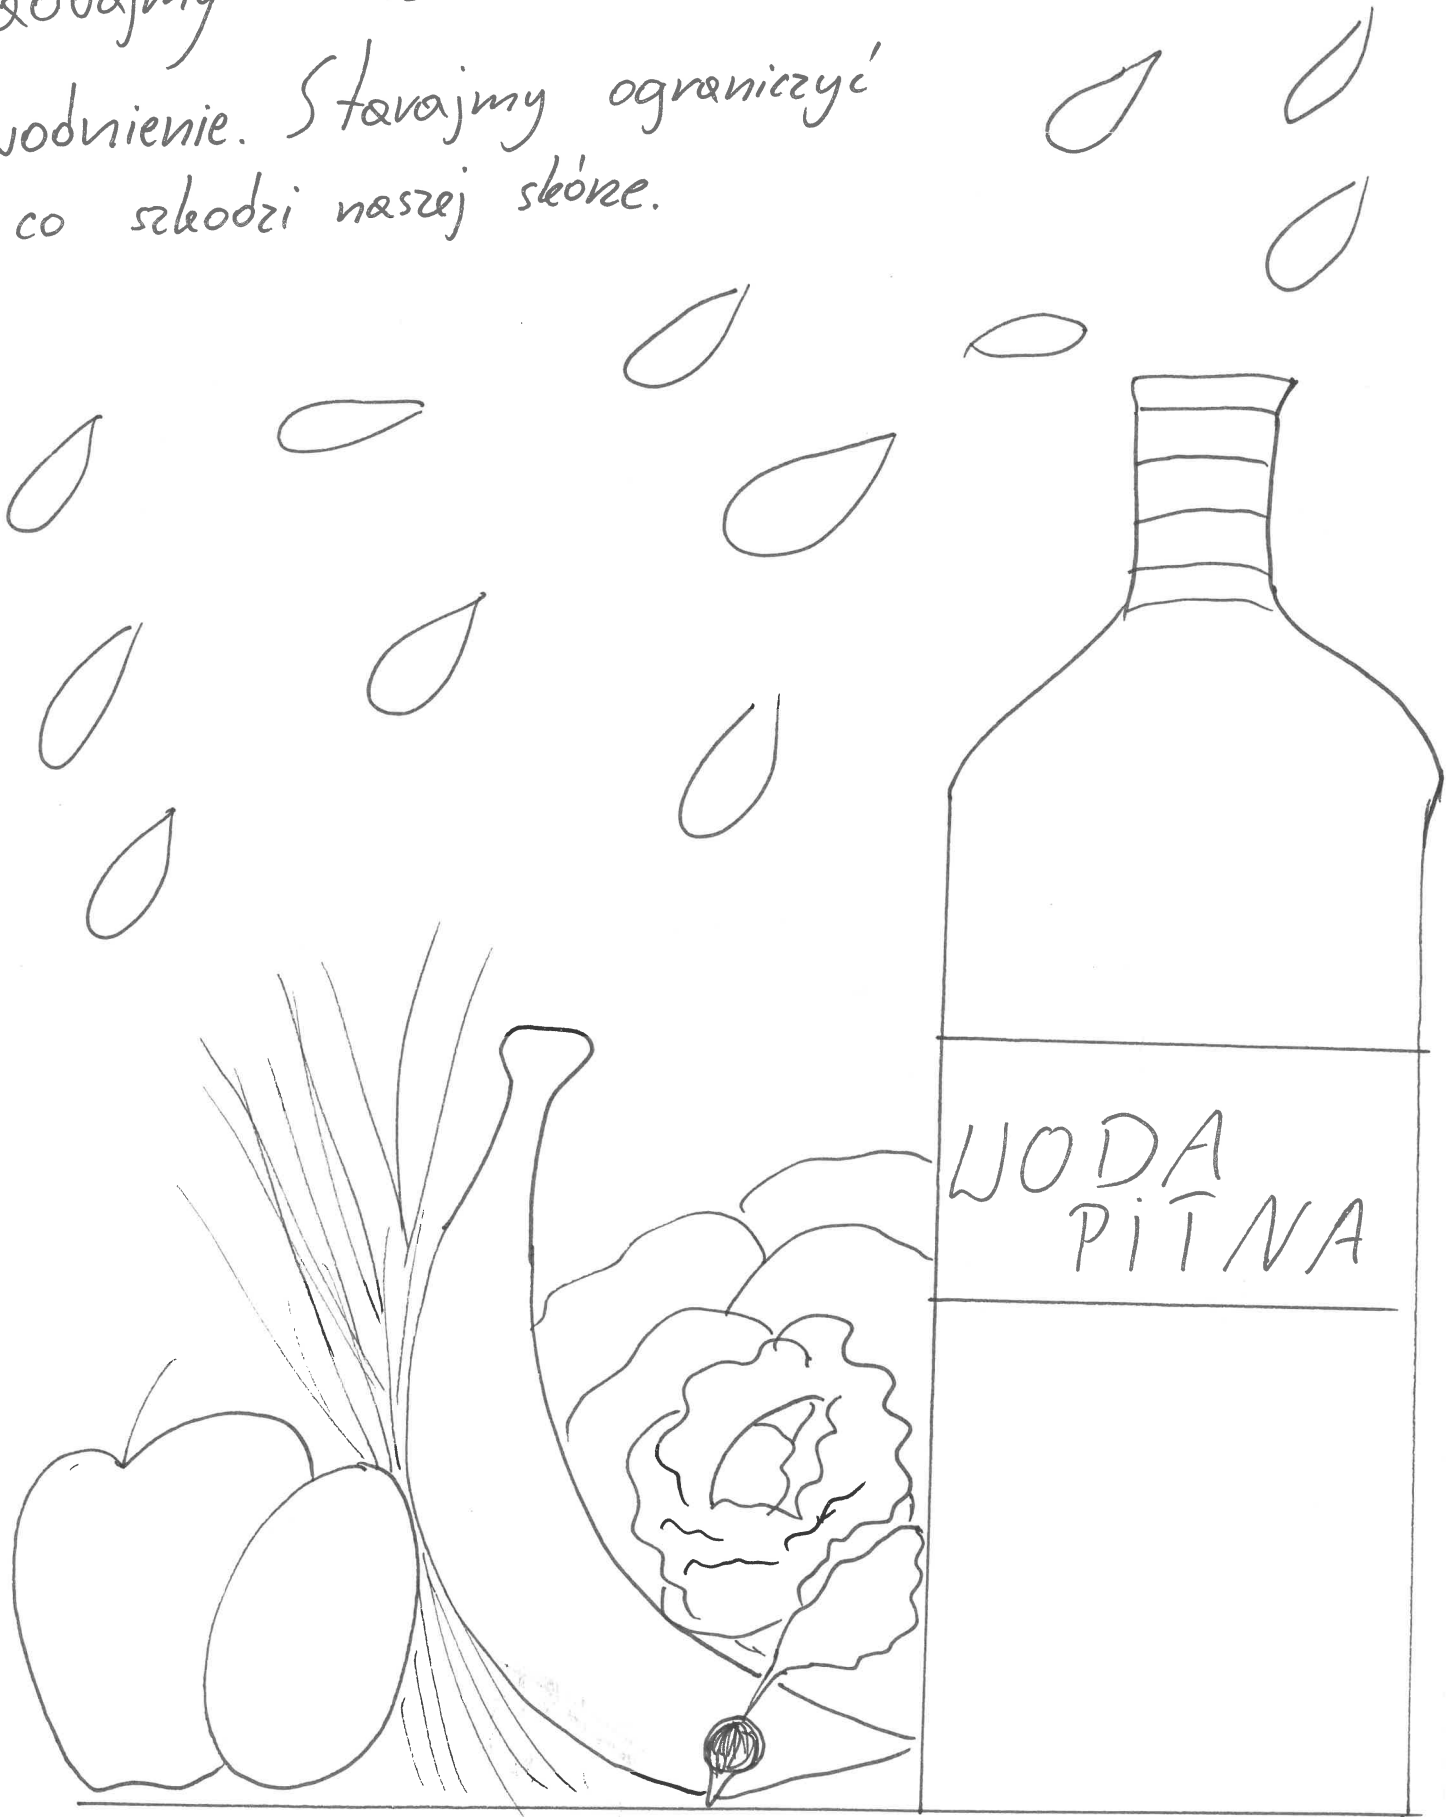 wodnienie. Starajmy ograniczyć
co szkodzi naszej skórze.
WODA
PITNA